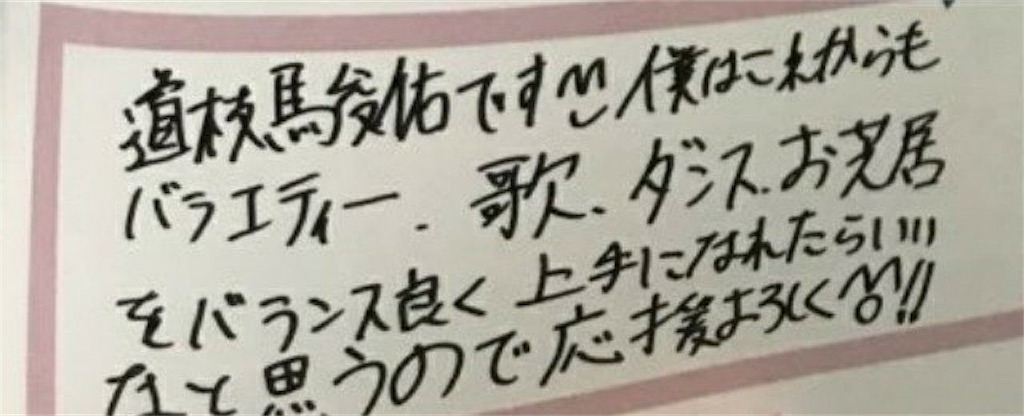 道枝馬俊佑です 僕はこれからも
バラエティー、歌、ダンス、お芝居
をバランス良く上手になれたらいい
なと思うので応援よろしく!!